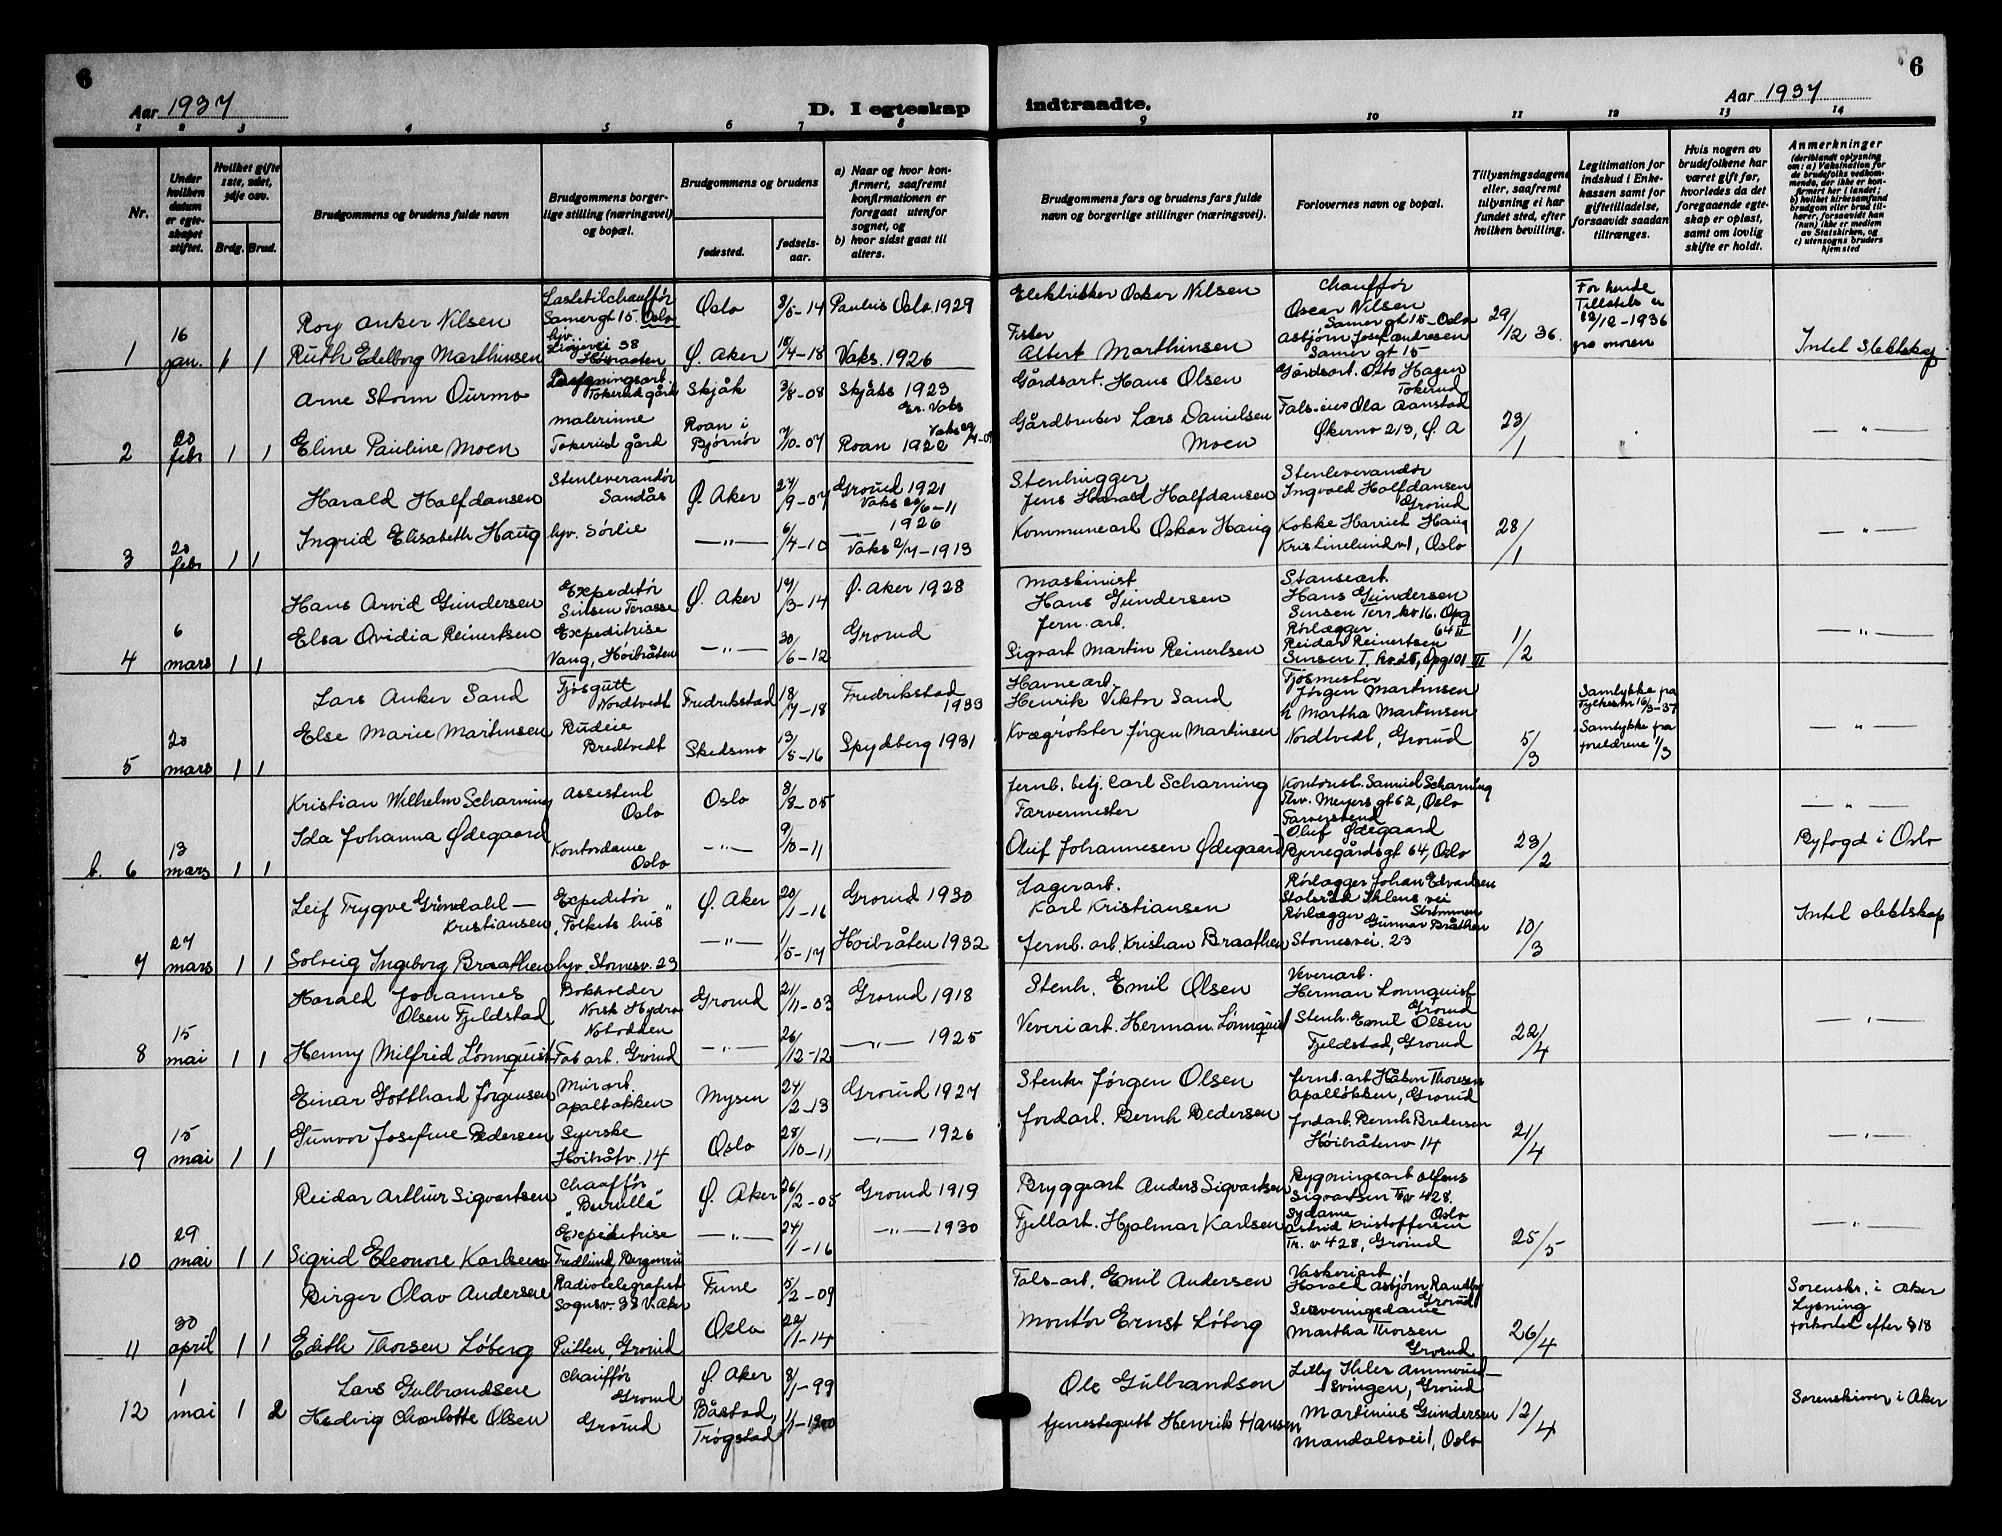 6
6
Aar 1937
D. I egteskap
indtraadte.
Aar 1937
1 2 3 4 5 6 7 8 9 10 11 12 13 14
Nr.
Under hvilken datum er egteskapet stiftet.
Hvilket gifte 1ste, 2det, 3dje osv.
Brdg. Brud.
Brudgommens og brudens fulde navn
Brudgommens borgerlige stilling (næringsvei) og bopæl.
Brudgommens og brudens
fødested.
fødselsaar.
a) Naar og hvor konfirmert, saafremt konfirmationen er foregaat utenfor sognet, og
b) hvor sidst gaat til alters.
Brudgommens fars og brudens fars fulde navn og borgerlige stillinger (næringsvei).
Forlovernes navn og bopæl.
Tillysningsdagene eller, saafremt tilysning ei har fundet sted, efter hvilken bevilling.
Legitimation for indskud i Enkekassen samt for giftetilladelse, forsaavidt saadan tiltrænges.
Hvis nogen av brudefolkene har været gift før, hvorledes da det foregaaende egteskap er opløst, samt om lovlig skifte er holdt.
Anmerkninger
(deriblandt oplysning om: a) Vaksination for de brudefolks vedkommende, der ikke er konfirmert her i landet; b) hvilket kirkesamfund brudgom eller brud tilhører, forsaavidt han (hun) ikke er medlem av Statskirken, og c) utensogns bruders hjemsted
1 16 jan. 1 1
Roy Anker Nilsen
Lastebilchauffør Samergt 15. Oslo
Oslo 8/5-14 Paulus Oslo 1929
Elektriker Oskar Nilsen
Chauffør Oscar Nilsen Samer gt 15 Oslo
29/12 36.
12/12-1936
fra moren
Ruth Edelborg Marthinsen
hjv.
Ø. Aker 18/4-18 Vaks. 1926
Fisker Albert Marthinsen
Asbjørn Josef Andresen Samer gt 15
Intet slektskap
2 20 febr 1 1
Arne Storm Øurmo
Tokerud gård
Skjåk 3/8-08 Skjåk 1923
Gårdsarb. Hans Olsen
Gårdsarb. Otto Hagen Tokerud
Eline Pauline Moen
malerinne Tokerud gård
Roan i Bjørnør 7/10-07 Roan 1922
Gårdbruker Lars Danielsen Moen
Ola Aanstad Økernv 213, Ø. A
23/1
— „ —
3 20 febr 1 1
Harald Halfdansen
Stenleverandør Sandås
Ø. Aker 27/9-07 Grorud 1921 Vaks 26/6-11
Stenhugger Jens Harald Halfdansen
Stenleverandør Ingvald Halfdansen Grorud
Ingrid Elisabeth Haug
hjv. Sørlie
— „ — 6/4-10 — 1926 Vaks 2/7-1913
Kommunearb Oskar Haug
Kokke Harriet Haug Kristinelundv 1, Oslo
28/1
— „ —
4 6 mars 1 1
Hans Arvid Gundersen
Expeditør Sinsen Terasse
Ø. Aker 12/3-14 Ø. Aker 1928
Maskinist Hans Gundersen
Stansearb. Hans Gundersen Sinsen Terr. hv 16. Opg 64 II
Elsa Ovidia Reinertsen
Expeditrise Vang, Høibråten
— „ — 30/6-12 Grorud
Jern. arb. Sigvart Martin Reinertsen
Rørlægger Reidar Reinertsen Sinsen T. hv 25, Opg 101 III
1/2
— „ —
5 20 mars 1 1
Lars Anker Sand
Fjøsgutt Nordtvedt
Fredrikstad 18/7-18 Fredrikstad 1933
Havnearb. Henrik Viktor Sand
Fjøsmester Jørgen Martinsen
Samtykke fra Fylkesm 16/3-37
Else Marie Martinsen
Budeie Bredtvedt
Skedsmo 13/5-16 Spydberg 1931
Kvægrøkter Jørgen Martinsen
h Martha Martinsen Nordtvedt, Grorud
5/3
Samtykke fra foreldrene 1/3
— „ —
b. 6 13 mars 1 1
Kristian Wilhelm Scharning
Assistent Oslo
Oslo 8/8-05
Jernb. betj. Carl Scharning
Kontorist. Samuel Scharning Thv. Meyers gt 62, Oslo
— „ —
Ida Johanna Ødegaard
Kontordame Oslo
— „ — 9/10-11
Farvermester Oluf Johannesen Ødegaard
Oluf Ødegaard Bjerregårdsgt 64, Oslo
23/2
Byfogd i Oslo
7 27 mars 1 1
Leif Trygve Grindahl — Kristiansen
Expeditør „Folkets hus“
Ø. Aker 20/1-16 Grorud 1930
Lagerarb. Karl Kristiansen
Rørlægger Johan Edvardsen Stalsråk Ihlens vei Strømmen
Intet slektskap
Solveig Ingeborg Braathen
hjv. Stornesv. 23
— „ — 1/5-17 Høibråten 1932
Jernb. arb. Kristian Braathen
Rørlægger Gunnar Bråthen Stornesvei. 23
10/3
8 15 mai 1 1
Harald Johannes Olsen Fjeldstad
Bokholder Norsk Hydro Notodden
Grorud 21/11-03 Grorud 1918
Stenh. Emil Olsen
Veveriarb. Herman Lønnquist Grorud
Henny Milfrid Lønnquist
Fab arb. Grorud
— „ — 26/12-12 — „ — 1925
Veveri arb. Herman Lønnquist
Stenh. Emil Olsen Fjeldstad, Grorud
22/4
— „ —
9 15 mai 1 1
Einar Gotthard Jørgensen
Murarb. Apalbakken
Mysen 24/2-13 Grorud 1927
Stenh. Jørgen Olsen
Jernb. arb Håkon Thoresen Apalløkken, Grorud
Gunvor Josefine Pedersen
Syerske Høibråtv. 14
Oslo 28/10-11 — „ — 1926
Jordarb. Bernh Pedersen
Jordarb. Bernh Pedersen Høibråtenv 14
21/4
— „ —
10 29 mai 1 1
Reidar Arthur Sigvartsen
Chauffør
Ø. Aker 26/2-05 Grorud 1919
Bryggearb Anders Sigvartsen
Bygningsarb Alfons Sigvartsen Tr.v 428. Oslo
Sigrid Eleonore Karlsen
Expeditrise Fredlund,
— „ — 24/1-16 — „ — 1930
Fjellarb. Hjalmar Karlsen
Sydame Astrid Kristoffersen Tr. v 428, Grorud
25/5
— „ —
11 30 april 1 1
Birger Olav Andersen
Radiotelegrafist Sognsv. 33 V. Aker
5/2-09
Fabr.arb. Emil Andersen
Vaskeriarb. Harald Asbjørn Grorud
Sorenskr. i Aker Lysning forkortet efter § 18
Edith Thorsen Løberg
Putten, Grorud
Oslo 22/1-14
Montør Ernst Løberg
Serveringsdame Martha Thorsen Grorud
26/4
12 1 mai 1 2
Lars Gulbrandsen
Chauffør Grorud
Ø. Aker 8/1-99
Ole Gulbrandsen
Lilly Ihler Ammerudsvingen, Grorud
Sorenskriver i Aker
Hedvig Charlotte Olsen
Grorud
Båstad, Trøgstad 1/1-1900
tjenestegutt Henrik Hansen
Martinius Gundersen Mandalsvei 1, Oslo
12/4